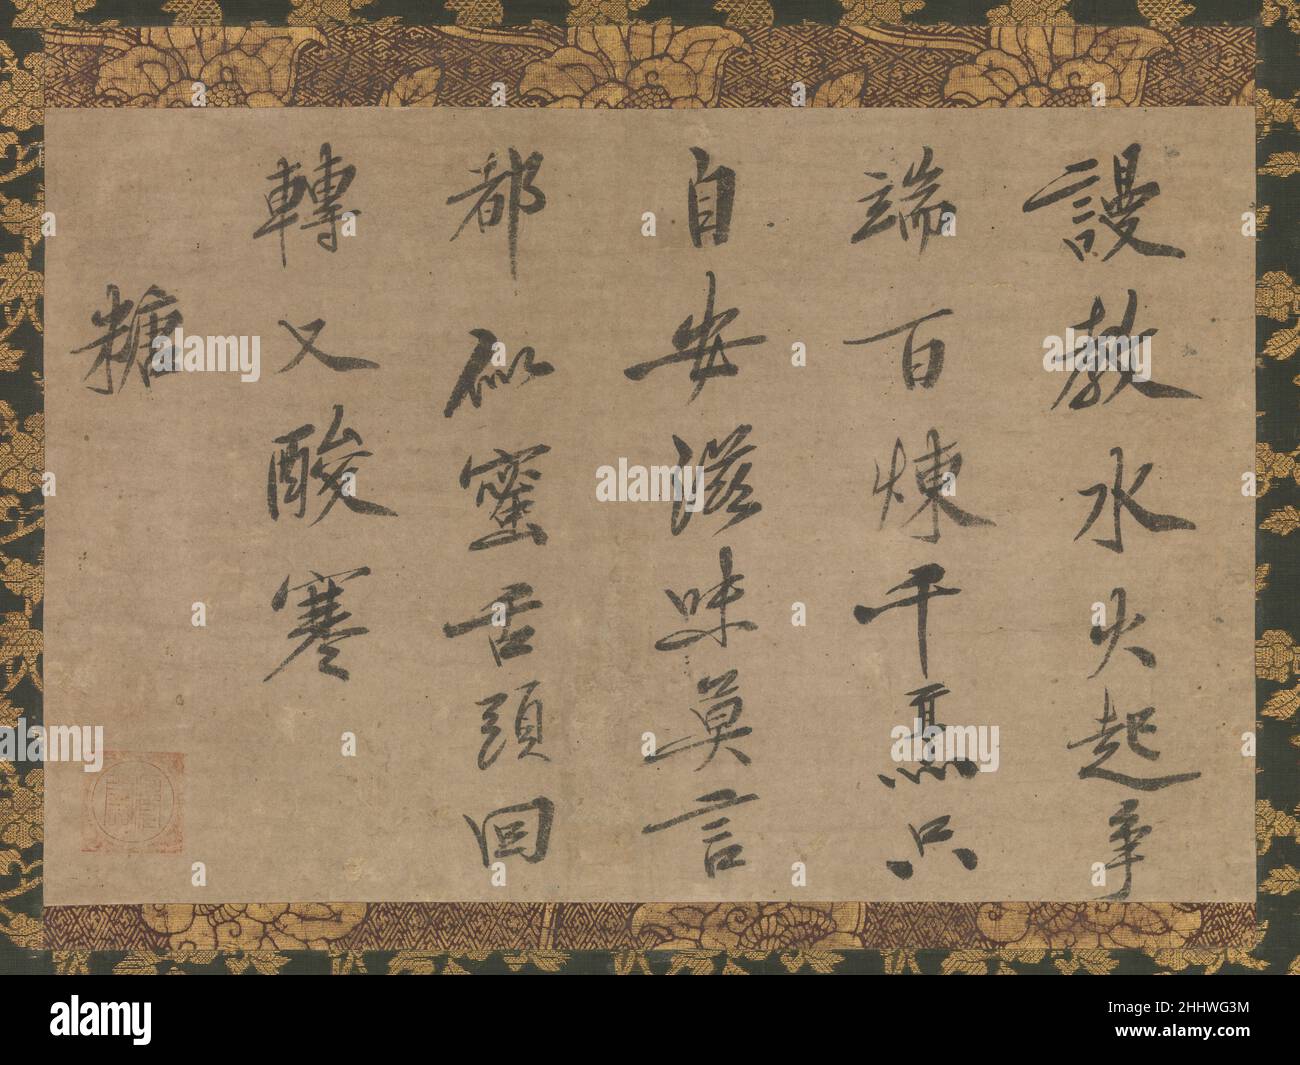 謾教水火起爭
端百煉千烹只
自安滋味莫言
都似蜜舌頭回
轉又酸寒
糖
alamy
alamy
Image ID: 2HHWG3M
www.alamy.com